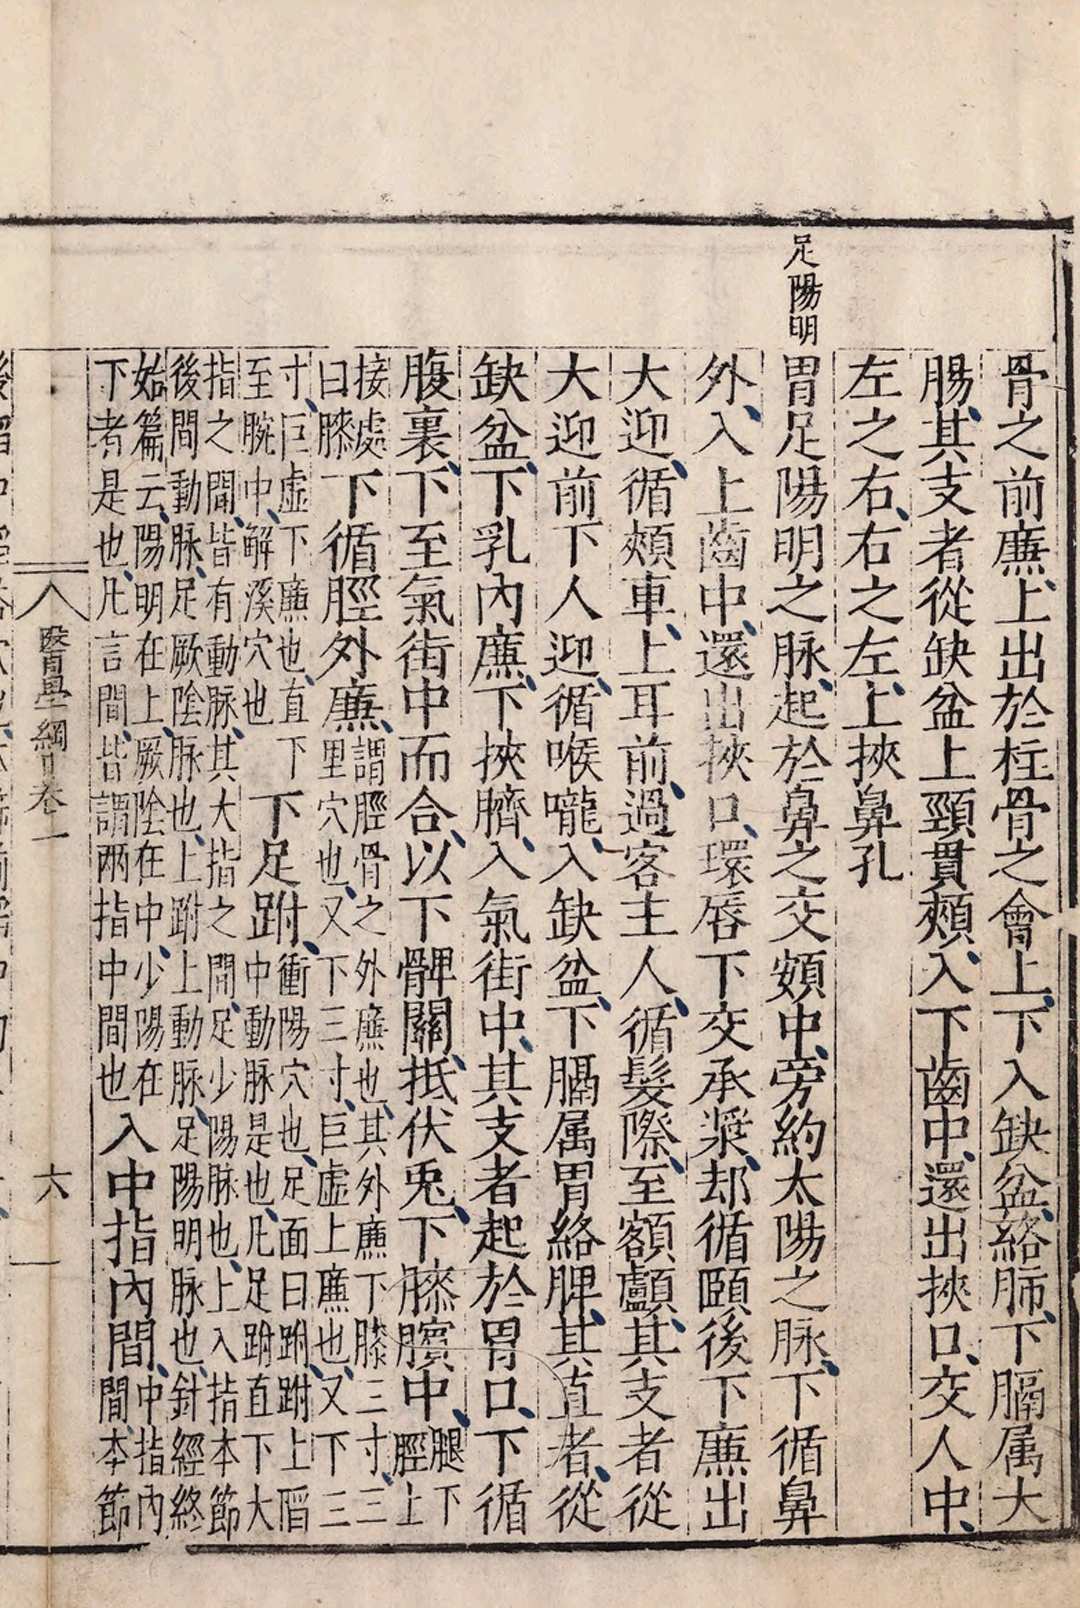 骨之前廉、上出於柱骨之會上、下入缺盆、絡肺、下膈属大
腸、其支者從缺盆上頸貫頰、入下齒中、還出挾口、交人中、
左之右、右之左、上挾鼻孔
足陽明
胃足陽明之脉、起於鼻之交頞中、旁約太陽之脉、下循鼻
外、入上齒中、還出挾口、環唇下交承漿、却循頤後下廉出
大迎、循頰車、上耳前、過客主人、循髮際、至額顱、其支者從
大迎前下人迎、循喉嚨、入缺盆、下膈属胃絡脾、其直者、從
缺盆、下乳內廉、下挾臍、入氣街中、其支者起於胃口、下循
腹裏、下至氣街中而合、以下髀關、抵伏兎、下膝臏中、腿下脛上
接處曰膝下循脛外廉、謂脛骨之外廉也、其外廉下膝三寸、三里穴也、又下三寸、巨虛上廉也、又下三
寸、巨虛下廉也、直下至腕中、解溪穴也下足跗、衝陽穴也、足面曰跗、跗上陷中動脉是也、凡足跗直下大
指之間、皆有動脉、其大指之間、足少陽脉也、上入指本節
後間動脉、足厥陰脉也、上跗上動脉、足陽明脉也、針經終
始篇云、陽明在上、厥陰在中、少陽在下者是也、凡言間、皆謂兩指中間也入中指內間、中指內間、本節
醫學綱目卷一
六